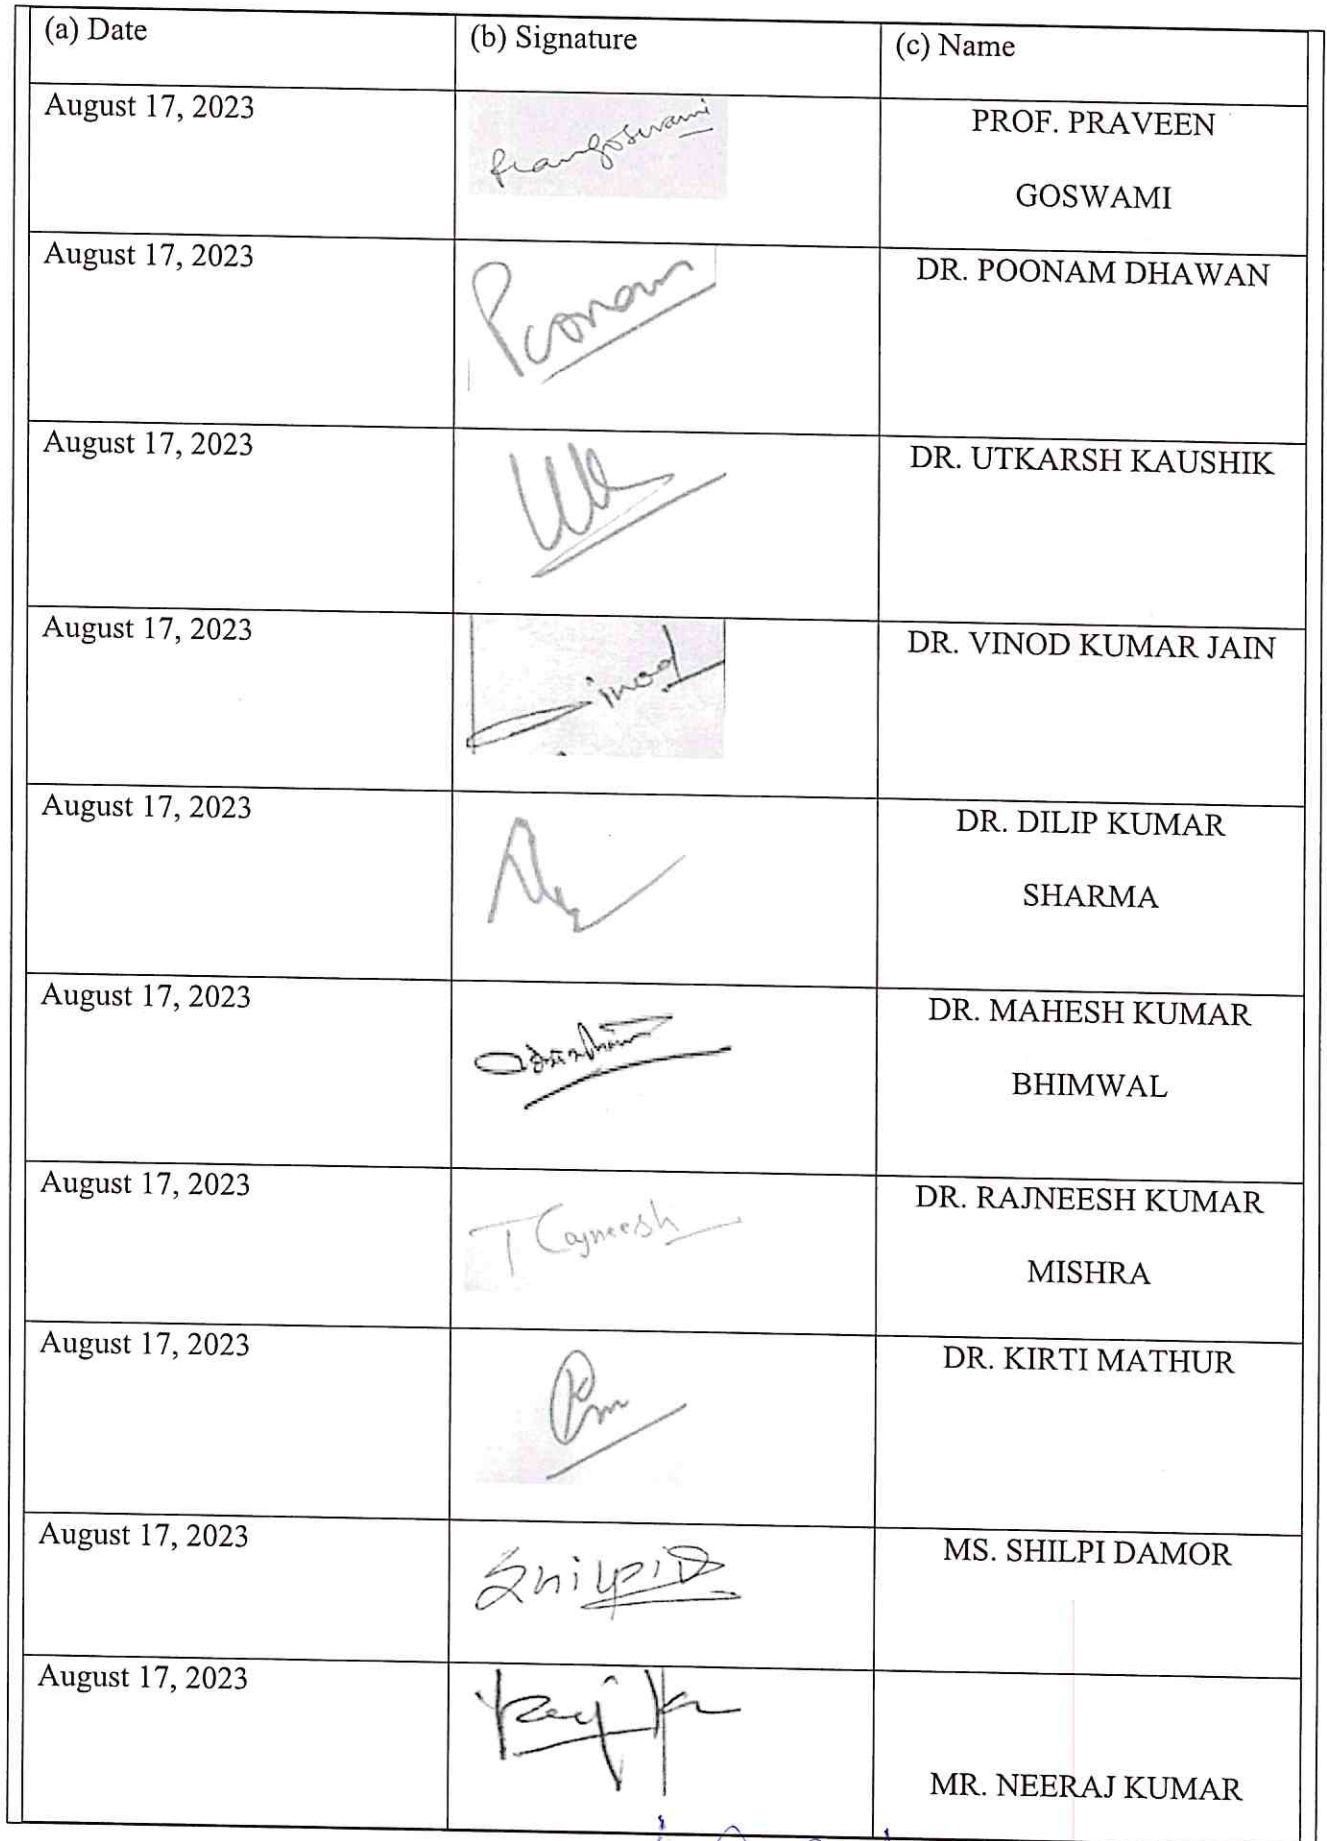 (a) Date (b) Signature (c) Name
August 17, 2023 PROF. PRAVEEN
GOSWAMI
August 17, 2023 Poonam DR. POONAM DHAWAN
August 17, 2023 DR. UTKARSH KAUSHIK
August 17, 2023 DR. VINOD KUMAR JAIN
August 17, 2023 DR. DILIP KUMAR
SHARMA
August 17, 2023 DR. MAHESH KUMAR
BHIMWAL
August 17, 2023 DR. RAJNEESH KUMAR
MISHRA
August 17, 2023 DR. KIRTI MATHUR
August 17, 2023 Shilpi D MS. SHILPI DAMOR
August 17, 2023
MR. NEERAJ KUMAR